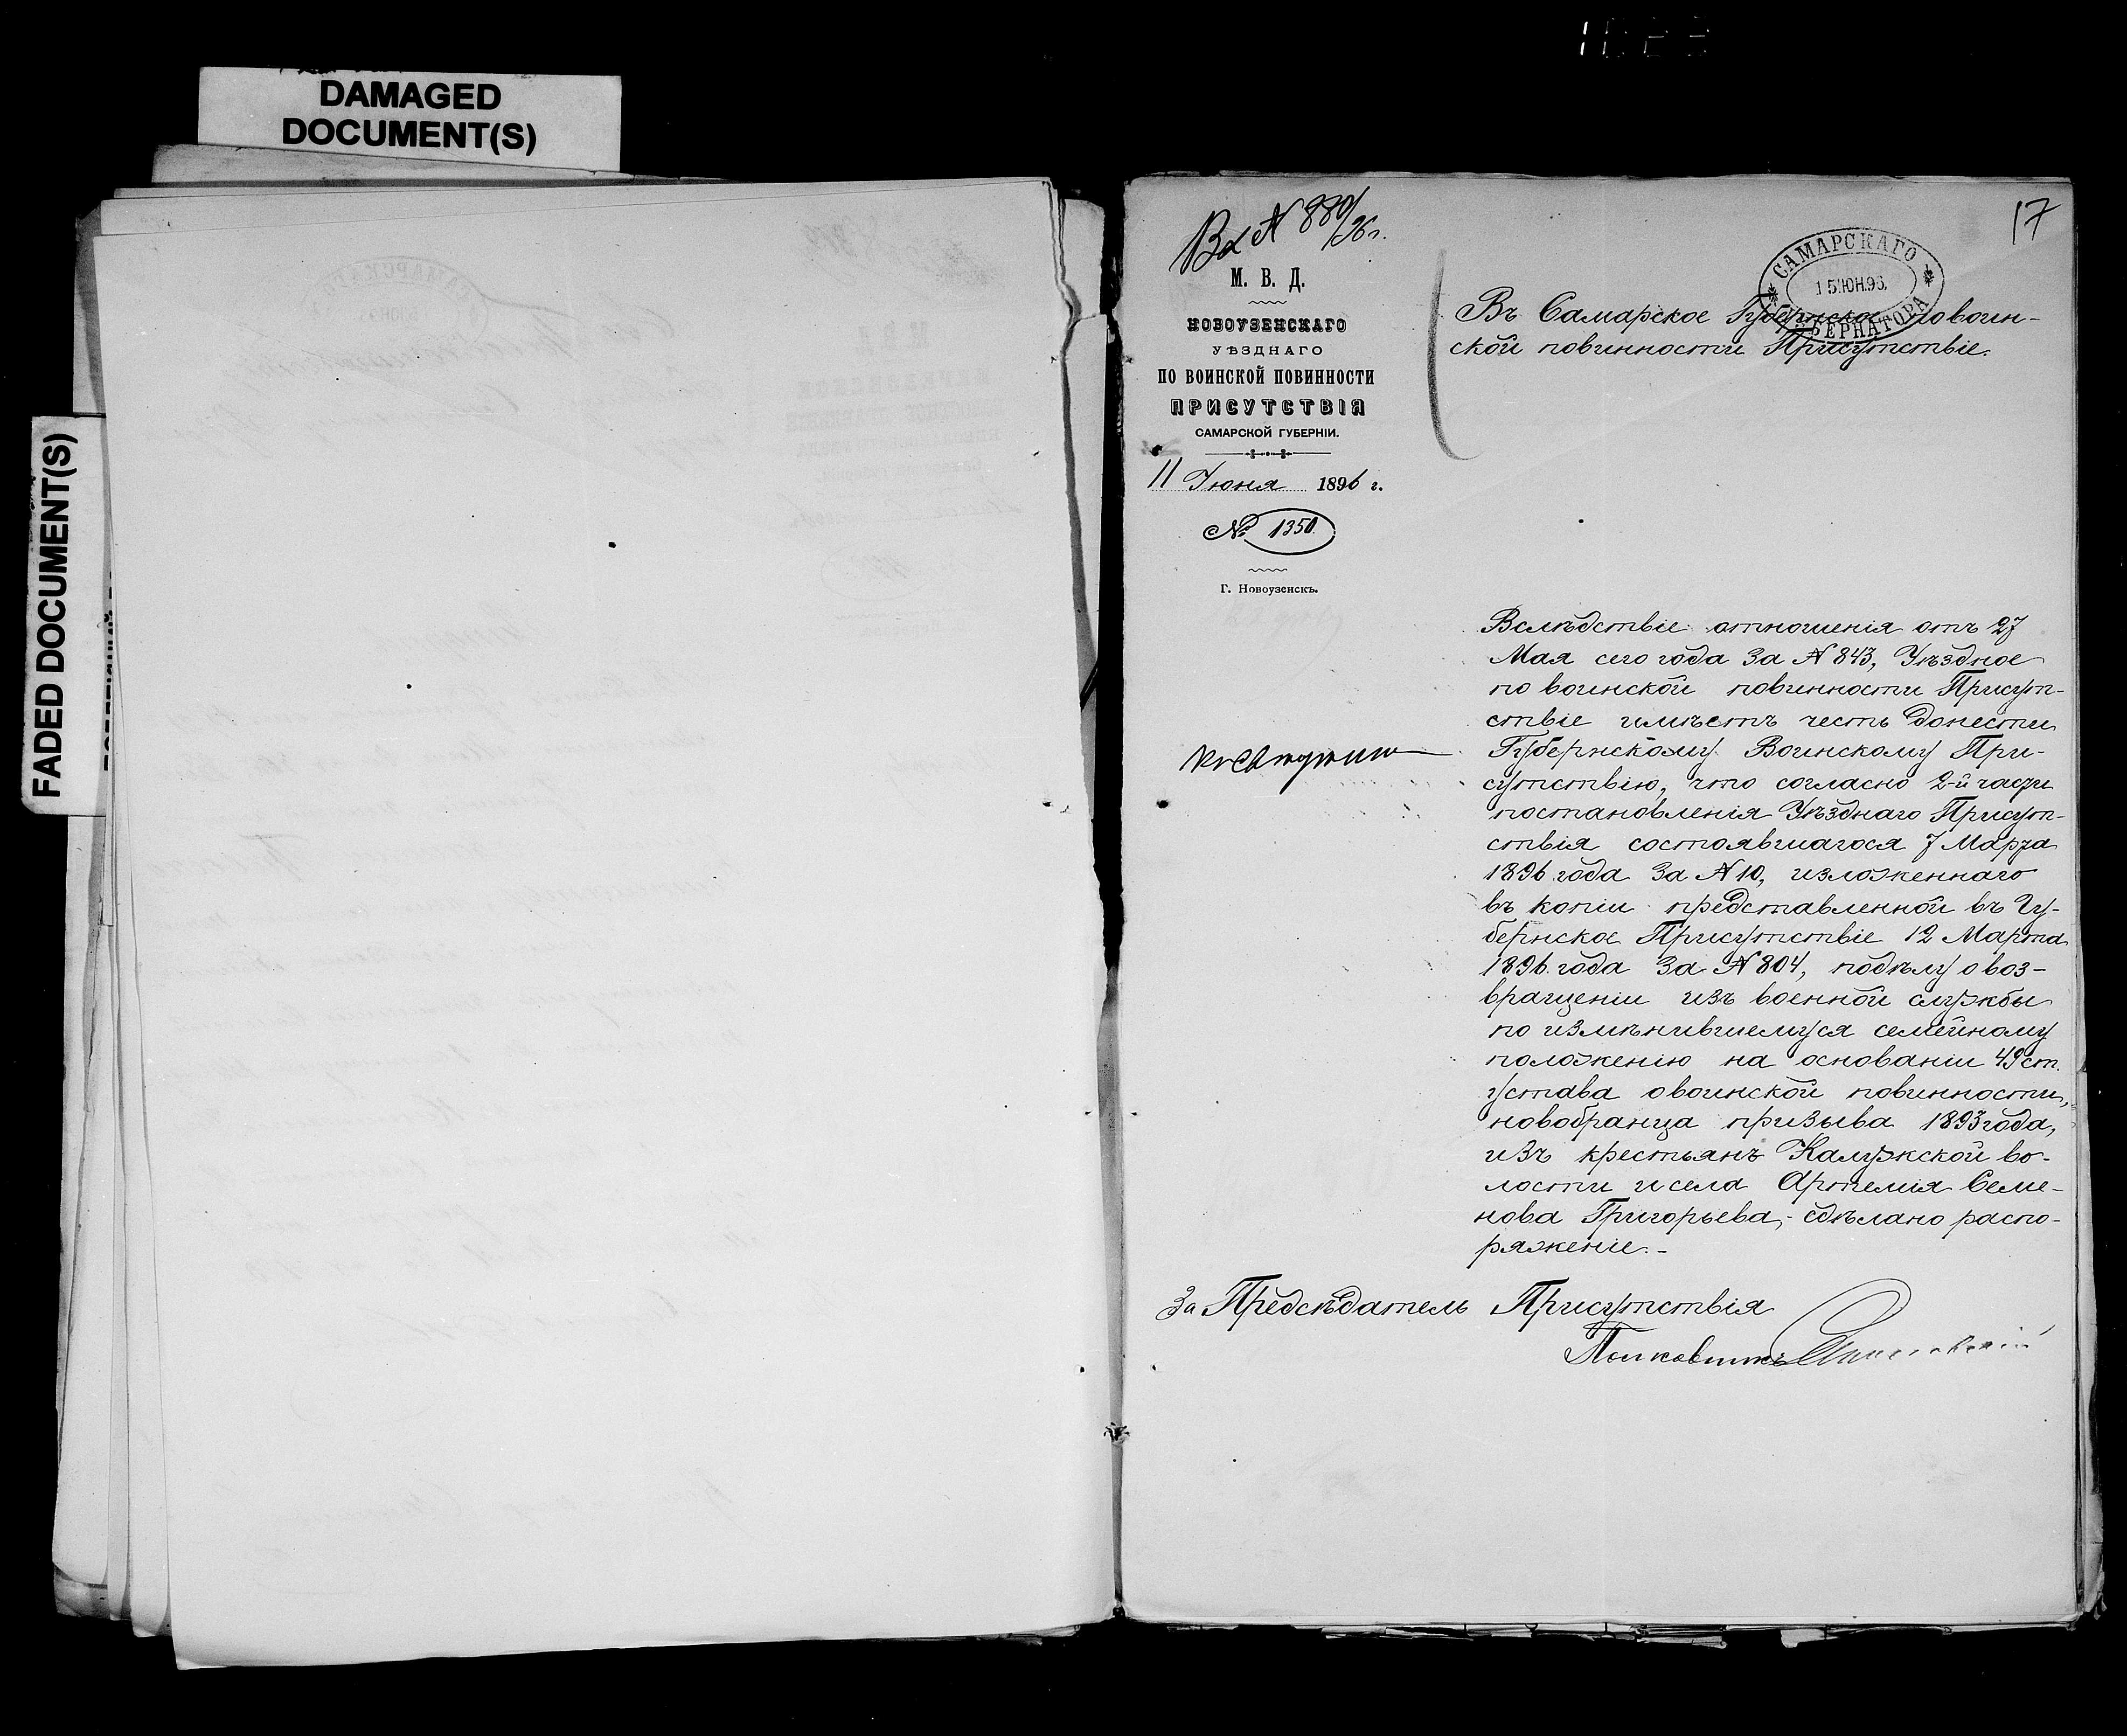 DAMAGED
DOCUMENT(S)
FADED DOCUMENT(S)
17
Вх N 880/96 г.
М. В. Д.
НОВОУЗЕНСКАГО
УѢЗДНАГО
ПО ВОИНСКОЙ ПОВИННОСТИ
ПРИСУТСТВІЯ
САМАРСКОЙ ГУБЕРНІИ.
11 Іюня 1896 г.
№ 1350.
Г. Новоузенскъ.
САМАРСКАГО
15 ІЮН. 96.
ГУБЕРНАТОРА
Въ Самарское Губернское по воин-
ской повинности Присутствіе.
Вслѣдствіе отношенія отъ 27
Мая сего года за N 843, Уѣздное
по воинской повинности Присут-
ствіе имѣетъ честь донести
Губернскому Воинскому При-
сутствію, что согласно 2-й части
постановленія Уѣзднаго Присут-
ствія состоявшагося 7 Марта
1896 года за N 10, изложеннаго
въ копіи представленной въ Гу-
бернское Присутствіе 12 Марта
1896 года за N 804, подѣлу о воз-
вращеніи изъ военной службы
по измѣнившемуся семейному
положенію на основаніи 49 ст.
устава о воинской повинности,
новобранца призыва 1893 года,
изъ крестьянъ Калужской во-
лости и села Артемія Семе-
нова Григорьева,- сдѣлано распо-
ряженіе.-
За Предсѣдатель Присутствія
Полковникъ